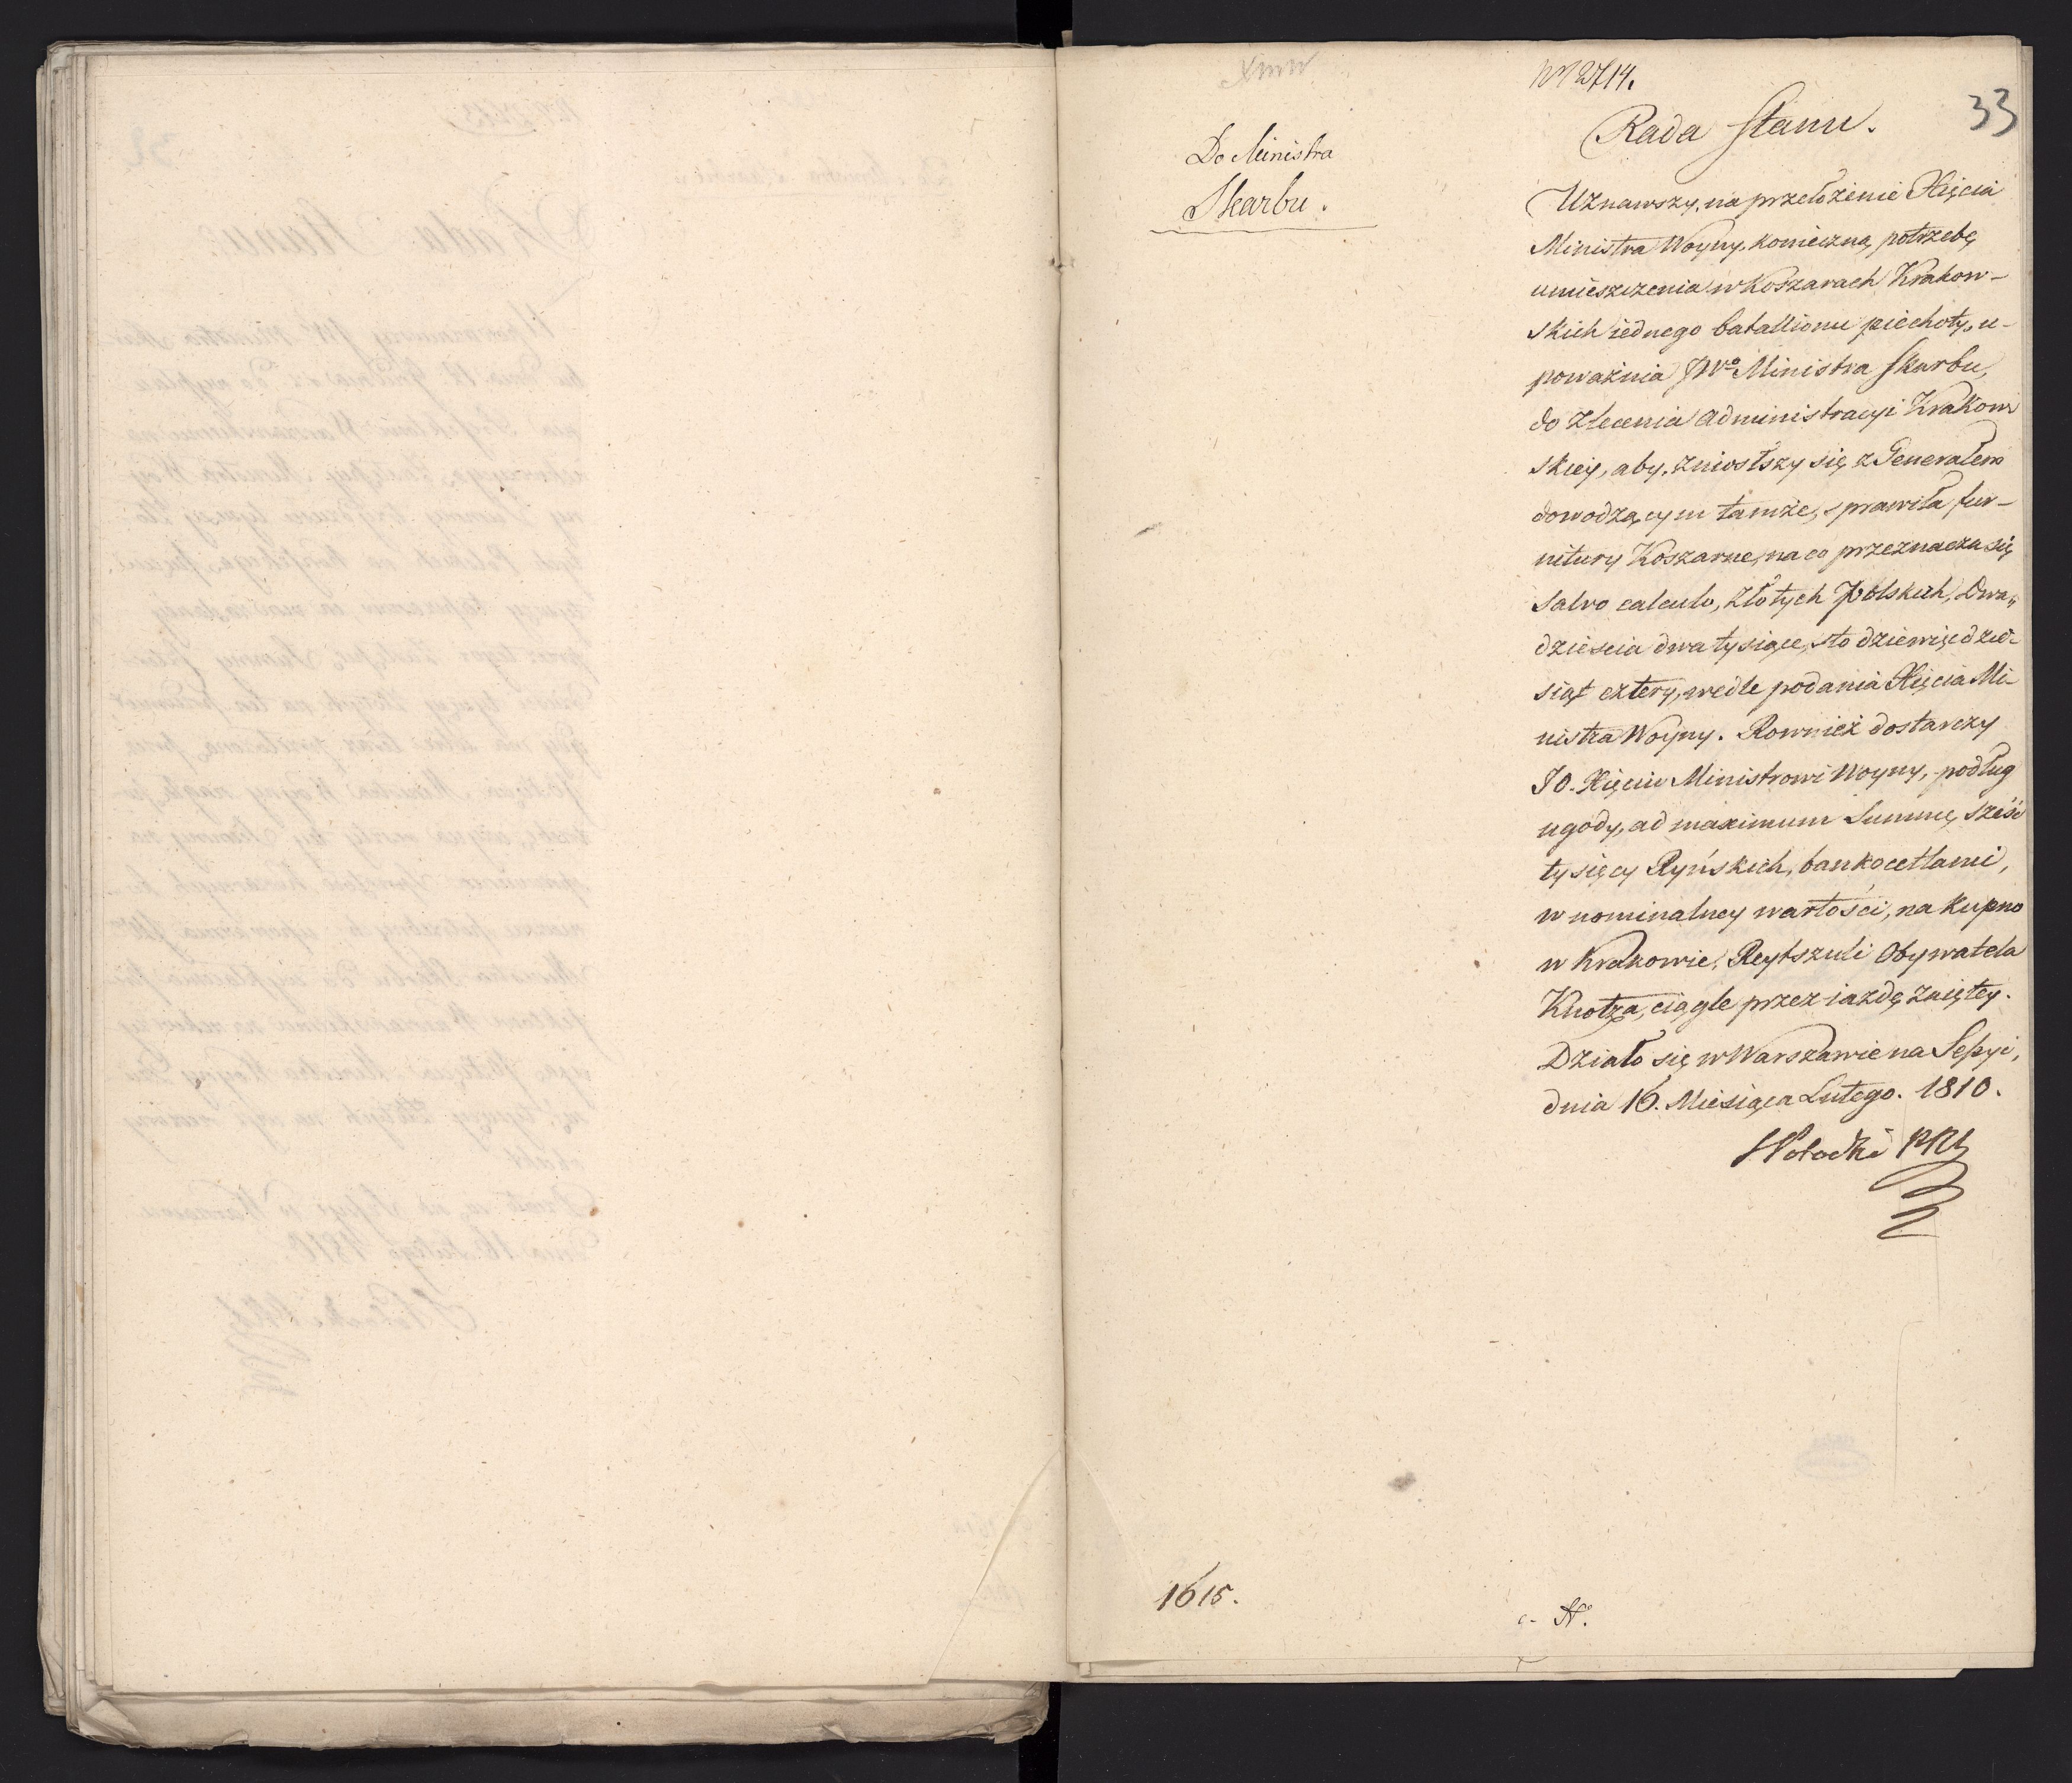 Nro 2714.
33
Rada Stanu.
Do Ministra
Skarbu.
Uznawszy, na przełożenie Xięcia
Ministra Woyny, konieczną potrzebę
umieszczenia w Koszarach Krakow-
skich iednego batallionu piechoty, u-
poważnia JWo Ministra Skarbu,
do zlecenia Administracyi Krakow
skiey, aby, zniosłszy się z Generałem
dowodzącym tamże, sprawiła fur-
nitury Koszarne, na co przeznacza się
salvo calculo, Złotych Polskich, Dwa„
dzieścia dwa tysiące, sto dziewiędzie-
siąt cztery, wedle podania Xięcia Mi-
nistra Woyny. Rownież dostarczy
JO. Xięciu Ministrowi Woyny, podług
ugody, ad maximum Summę sześć
tysięcy Ryńskich, bankocetlami,
w nominalney wartości, na kupno
w Krakowie, Reytszuli Obywatela
Knotza, ciągle przez iazdę zaiętey.
Działo się w Warszawie na Sessyi,
dnia 16. Miesiąca Lutego. 1810.
S Potocki PRS
1615.